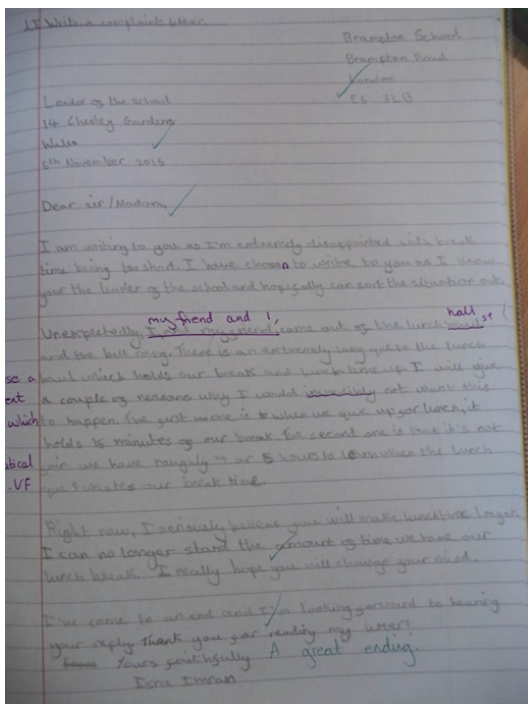 LI Write a complaint letter
Brampton School
Brampton Road
London
E6 3LB
Leader of the school
14 Chesley Gardens
Wales
6th November 2015
Dear sir/Madam,
I am writing to you as I'm extremely disappointed with break
time being too short. I have chosen to write to you as I know
your the leader of the school and hopefully can sort the situation out.
my friend and I,
hall
Unexpectedly, I and my friend, come out of the lunch
and the bell rung. There is an extremely long que to the lunch
which holds our break and lunch time up. I will give
a couple of reasons why I would incredibly not want this
which to happen. The first one is when we que up for lunch, it
holds 15 minutes of our break. The second one is that it's not
fair we have roughly 4 or 5 hours to learn when the lunch
que wastes our break time.
Right now, I seriously believe you will make lunchtime longer
I can no longer stand the amount of time we have our
lunch break. I really hope you will change your mind.
I've come to an end and I'm looking forward to hearing
your reply. Thank you for reading my letter!
Yours faithfully A great ending.
Isra Imran